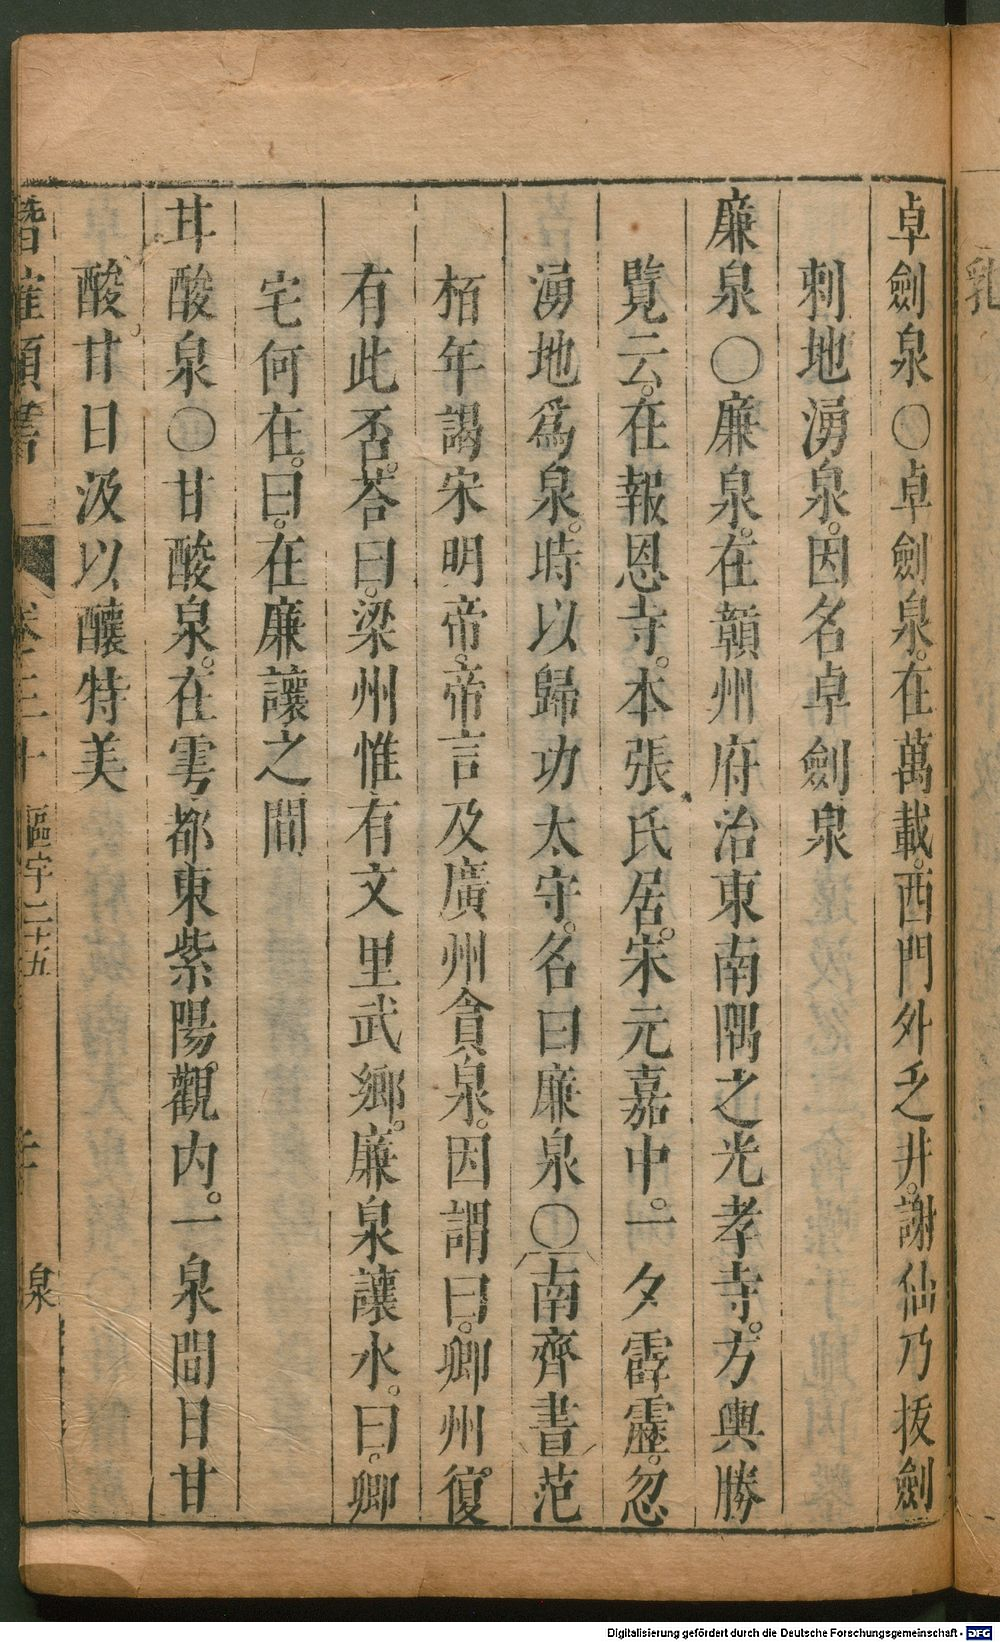 卓劍泉○卓劍泉。在萬載。西門外乏井。謝仙乃拔劍
刺地湧泉。因名卓劍泉
廉泉○廉泉。在贛州府治東南隅之光孝寺。方輿勝
覽云。在報恩寺。本張氏居。宋元嘉中。一夕霹靂。忽
湧地爲泉。時以歸功太守。名曰廉泉○南齊書范
栢年謁宋明帝。帝言及廣州貪泉。因謂曰。卿州復
有此否。荅曰。梁州惟有文里武鄉。廉泉讓水。曰。卿
宅何在。曰。在廉讓之間
甘酸泉○甘酸泉。在雩都東紫陽觀内。一泉間日甘
酸。甘日汲以釀特美
潛確類書 卷之三十 區宇二十五 泉
乳
Digitalisierung gefördert durch die Deutsche Forschungsgemeinschaft - DFG